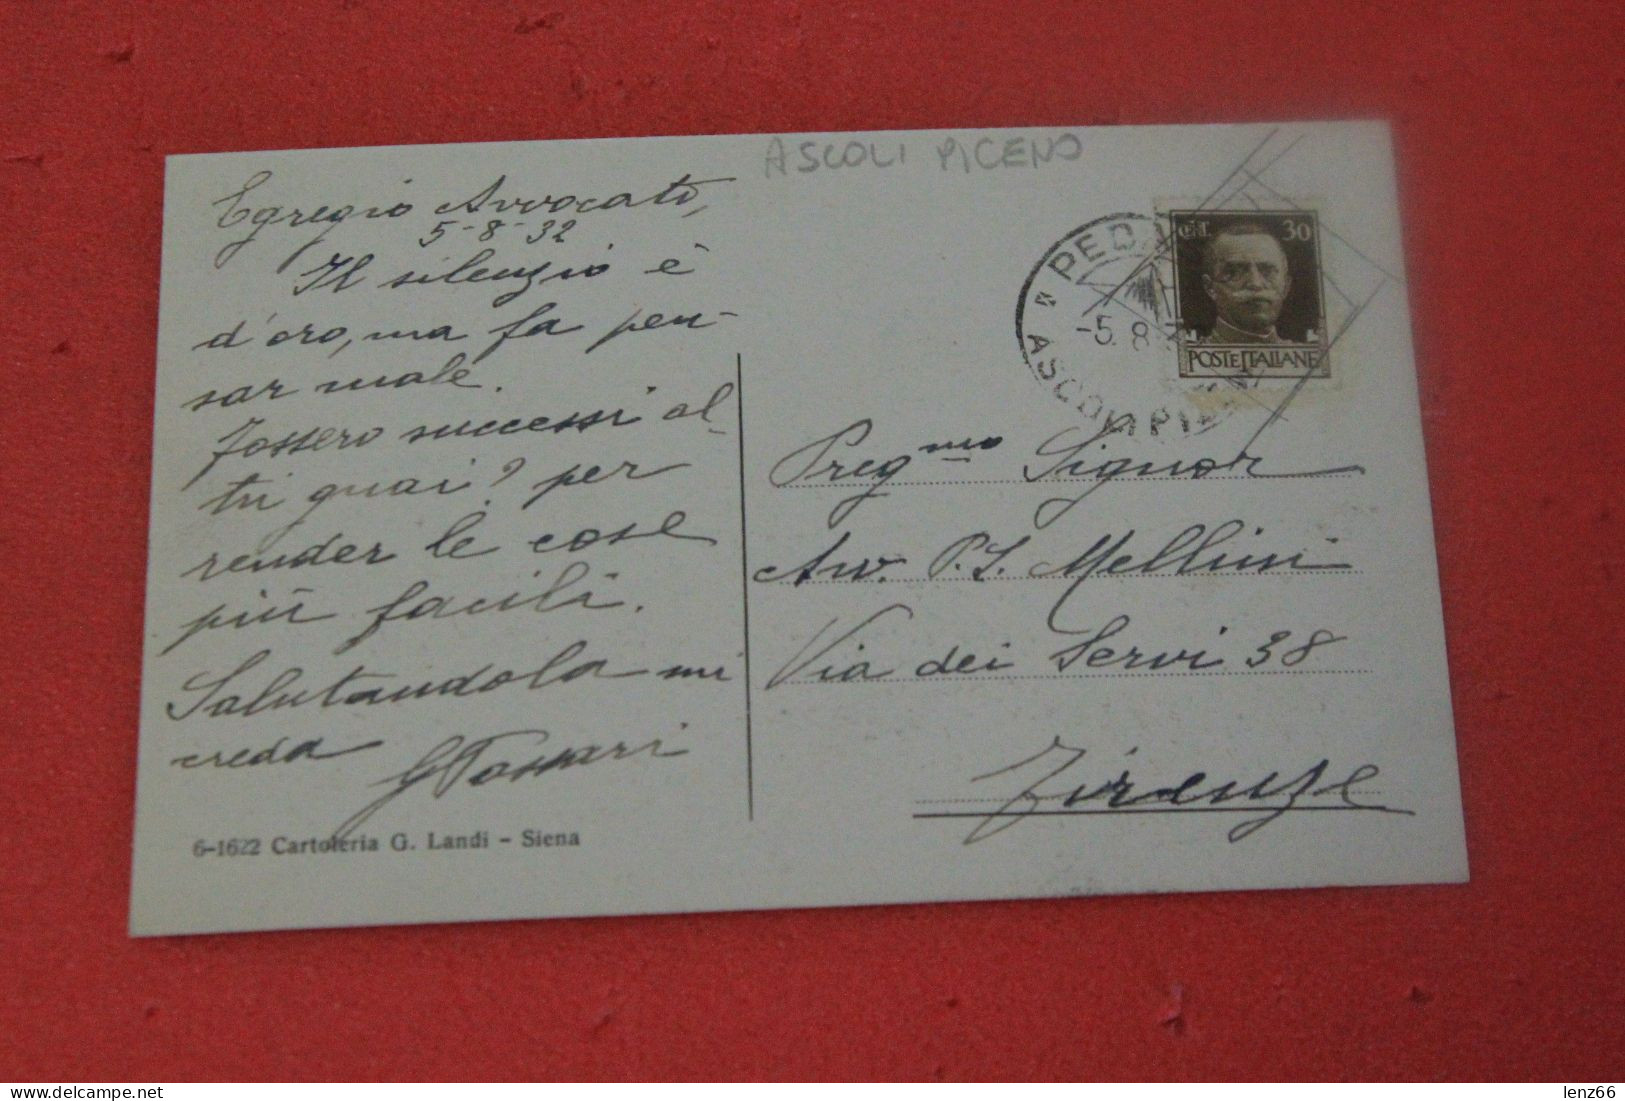 ASCOLI PICENO
Egregio Avvocato,
5-8-32
Il silenzio è
d'oro, ma fa pen-
sar male.
Fossero successi al-
tri guai? per
render le cose
più facili.
Salutandola mi
creda
6-1622 Cartoleria G. Landi - Siena
PEDA
ASCOLI PI
-5 8
CENT. 30
POSTE ITALIANE
Preg.mo Signor
Avv. P. S. Mellini
Via dei Servi 38
Firenze
lenz66